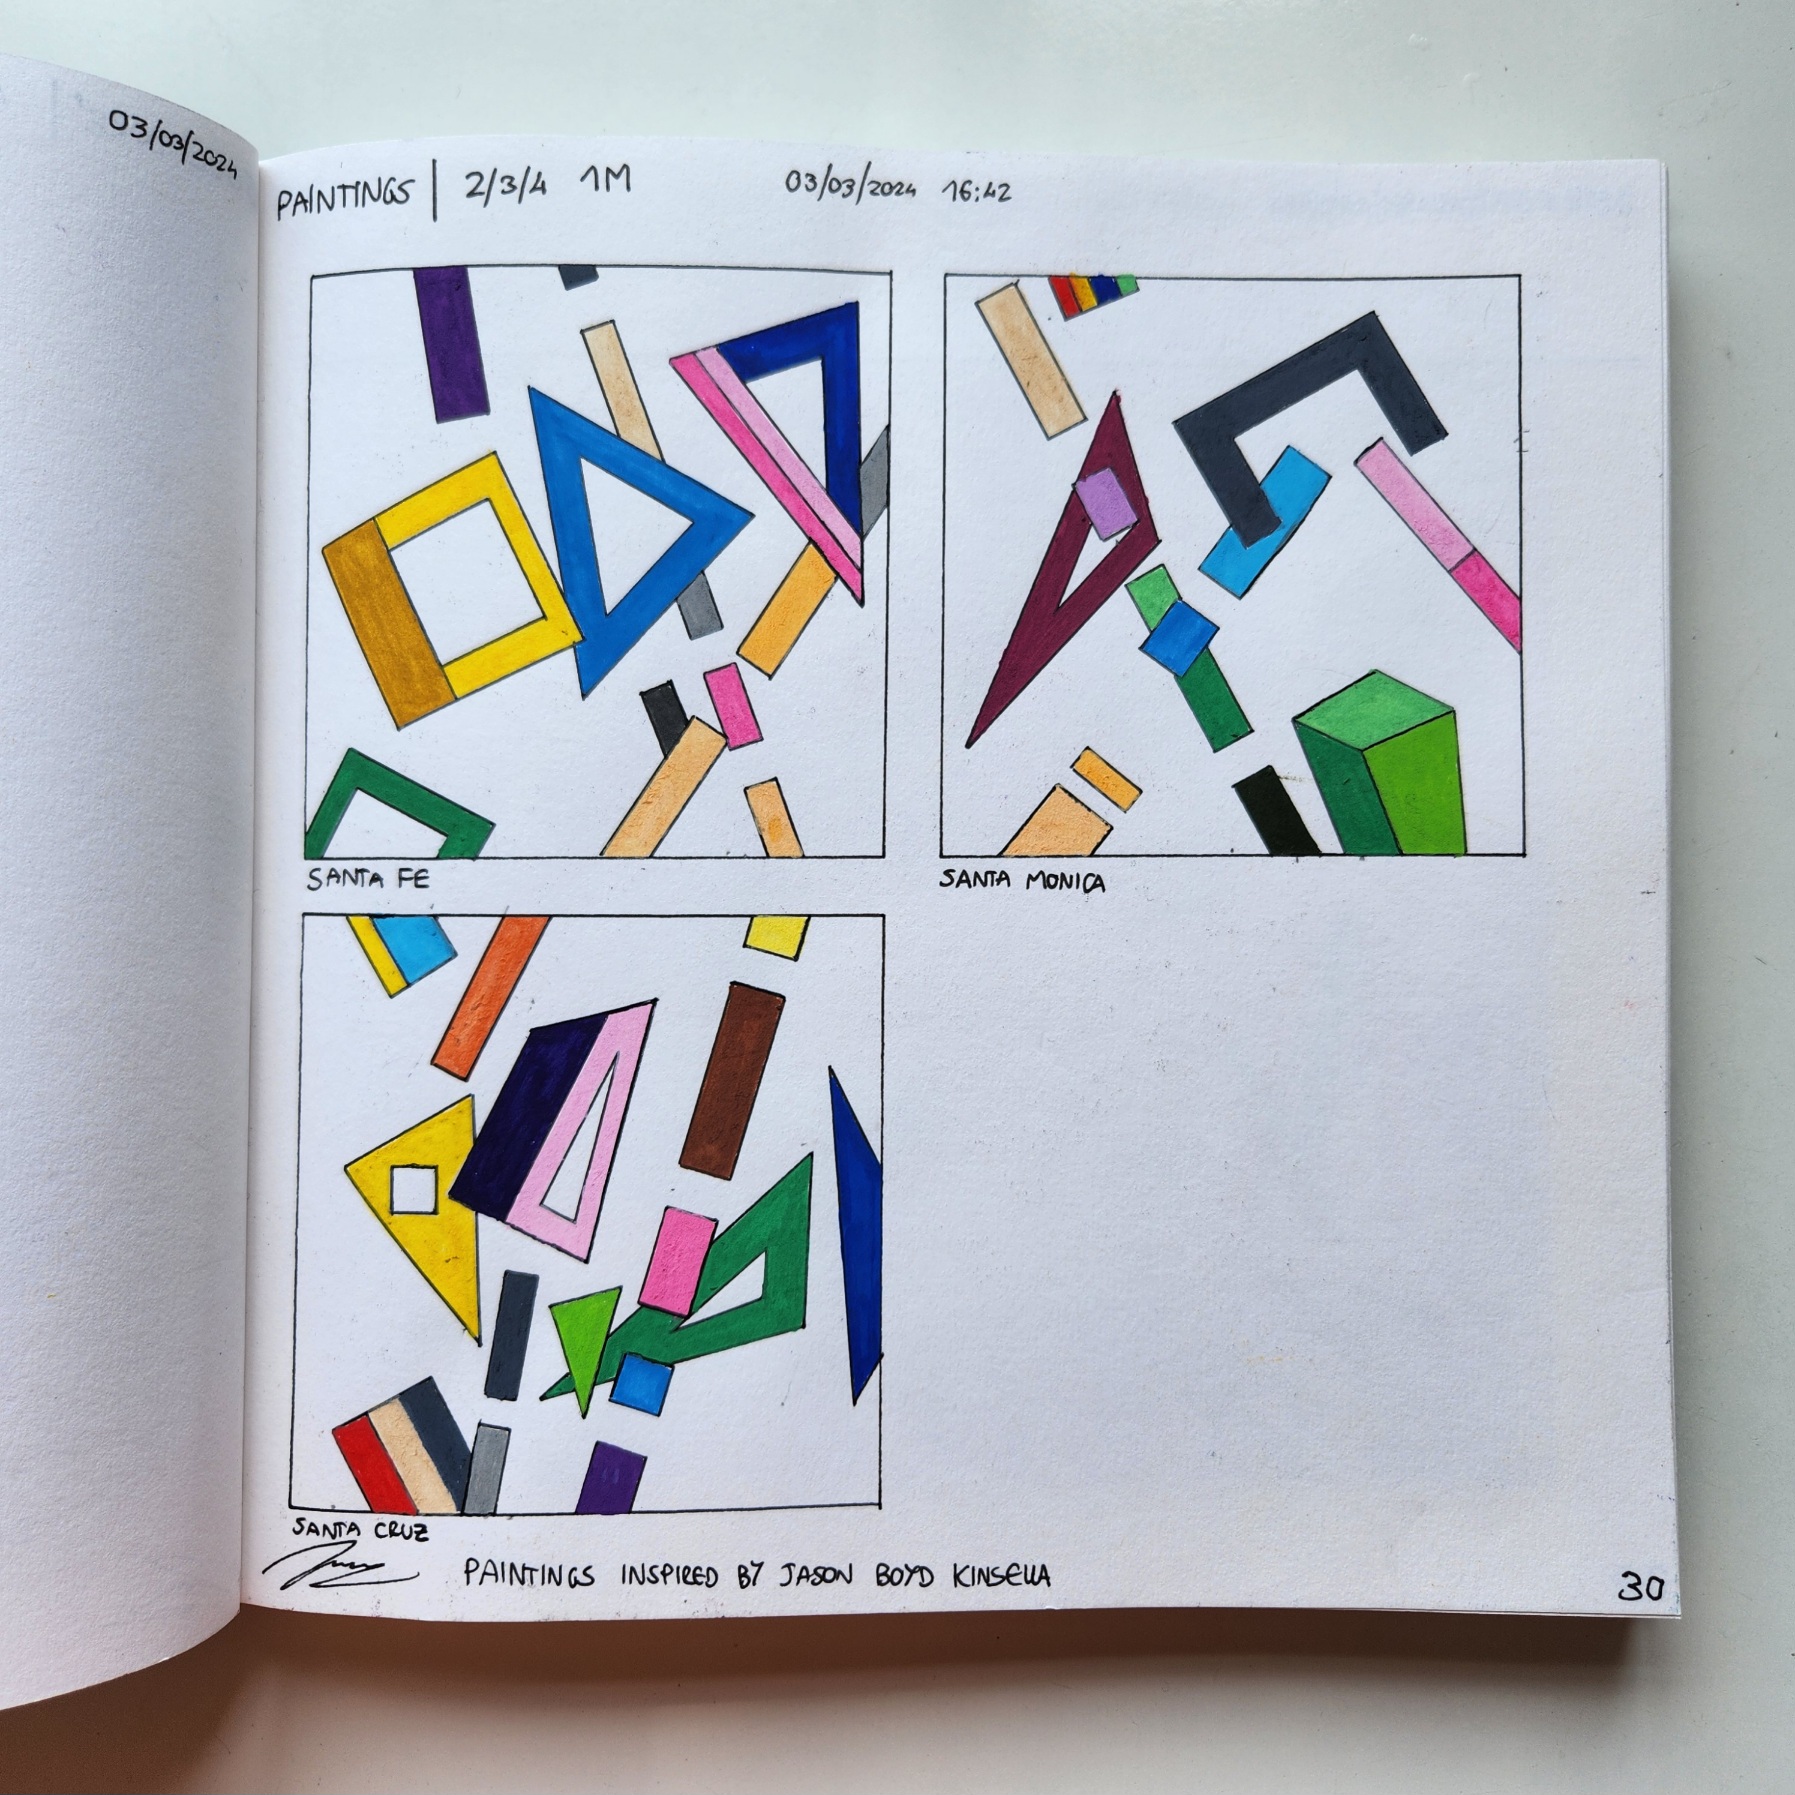 03/03/2024
PAINTINGS | 2/3/4 1M 03/03/2024 16:42
SANTA FE
SANTA MONICA
SANTA CRUZ
PAINTINGS INSPIRED BY JASON BOYD KINSELLA
30